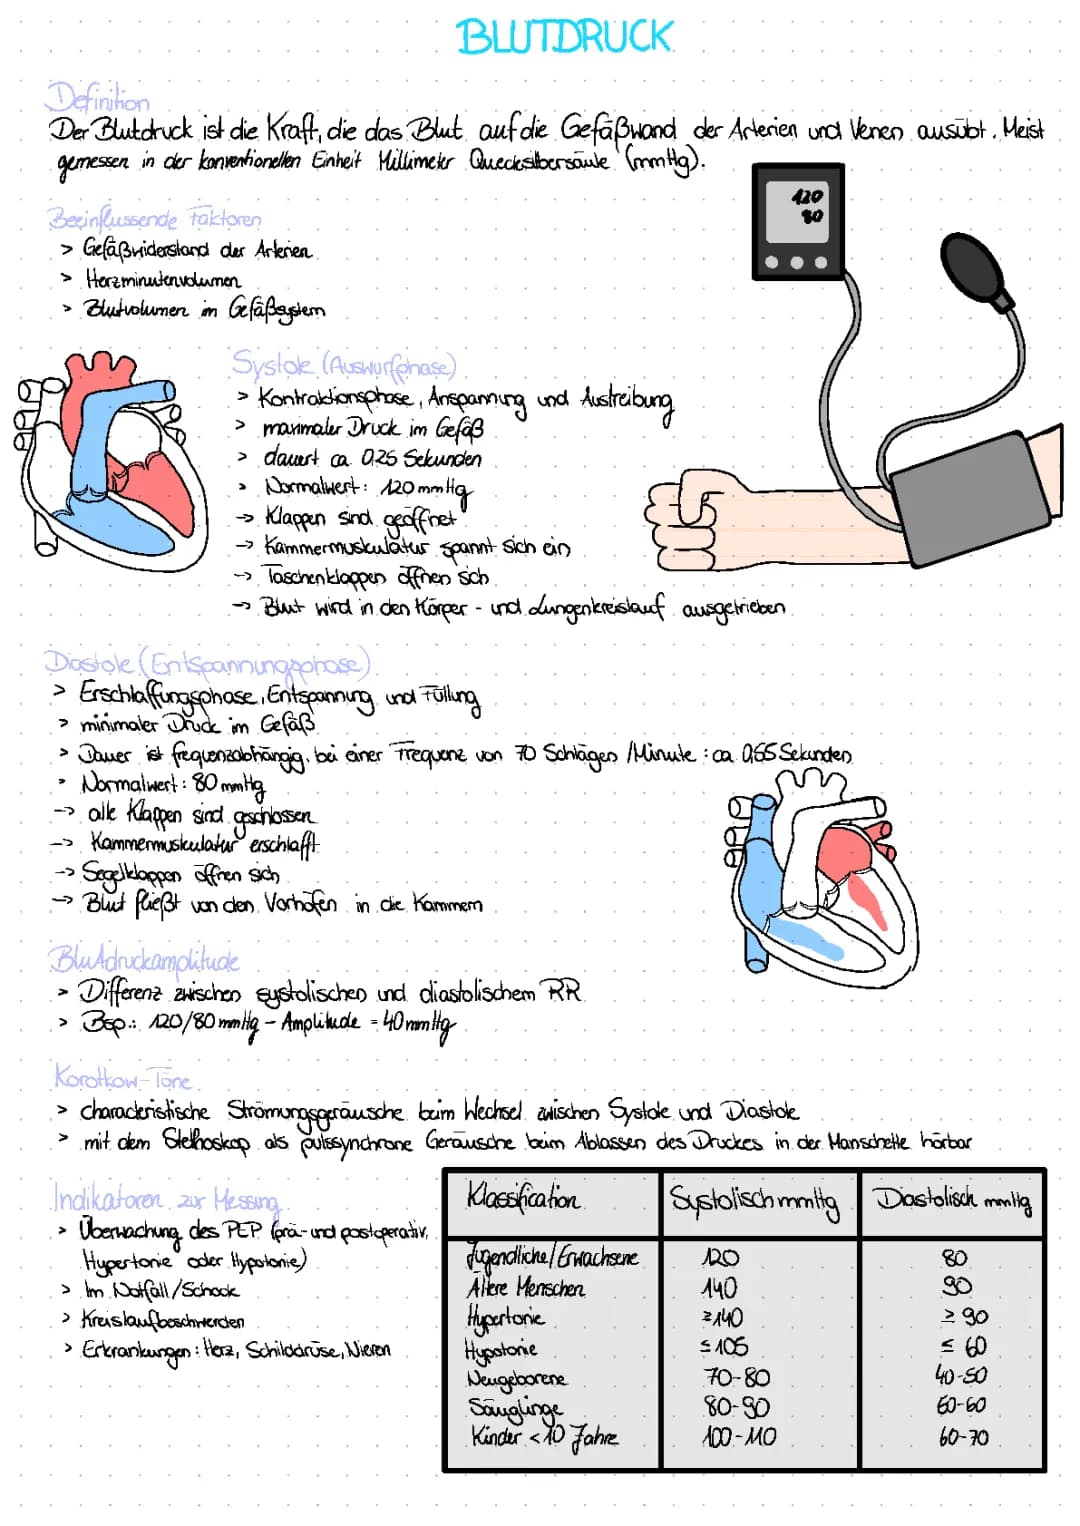 BLUTDRUCK
Definition
Der Blutdruck ist die Kraft, die das Blut auf die Gefäßwand der Arterien und Venen ausübt. Meist
gemessen in der konventionellen Einheit Millimeter Quecksilbersäule (mmHg).
120
80
Beeinflussende Faktoren
> Gefäßwiderstand der Arterien
> Herzminutenvolumen
> Blutvolumen im Gefäßsystem
Systole (Auswurfphase)
> Kontraktionsphase, Anspannung und Austreibung
> maximaler Druck im Gefäß
> dauert ca. 0,25 Sekunden
> Normalwert: 120 mmHg
-> Klappen sind geöffnet
-> Kammermuskulatur spannt sich ein
-> Taschenklappen öffnen sich
-> Blut wird in den Körper- und Lungenkreislauf ausgetrieben
Diastole (Entspannungsphase)
> Erschlaffungsphase, Entspannung und Füllung
> minimaler Druck im Gefäß
> Dauer ist frequenzabhängig, bei einer Frequenz von 70 Schlägen /Minute: ca. 0,65 Sekunden
> Normalwert: 80 mmHg
-> alle Klappen sind geschlossen
-> Kammermuskulatur erschlafft
-> Segelklappen öffnen sich
-> Blut fließt von den Vorhöfen in die Kammern
Blutdruckamplitude
> Differenz zwischen systolischen und diastolischem RR
> Bsp.: 120/80 mmHg - Amplitude = 40 mmHg
Korotkow-Töne
> charakteristische Strömungsgeräusche beim Wechsel zwischen Systole und Diastole
> mit dem Stethoskop als pulssynchrone Geräusche beim Ablassen des Druckes in der Manschette hörbar
Indikatoren zur Messung
> Überwachung des PEP (prä- und postoperativ,
Hypertonie oder Hypotonie)
> Im Notfall/Schock
> Kreislaufbeschwerden
> Erkrankungen: Herz, Schilddrüse, Nieren
Klassification Systolisch mmHg Diastolisch mmHg
Jugendliche/Erwachsene 120 80
Ältere Menschen 140 90
Hypertonie ≥140 ≥ 90
Hypotonie ≤105 ≤ 60
Neugeborene 70-80 40-50
Säuglinge 80-90 60-60
Kinder <10 Jahre 100-110 60-70